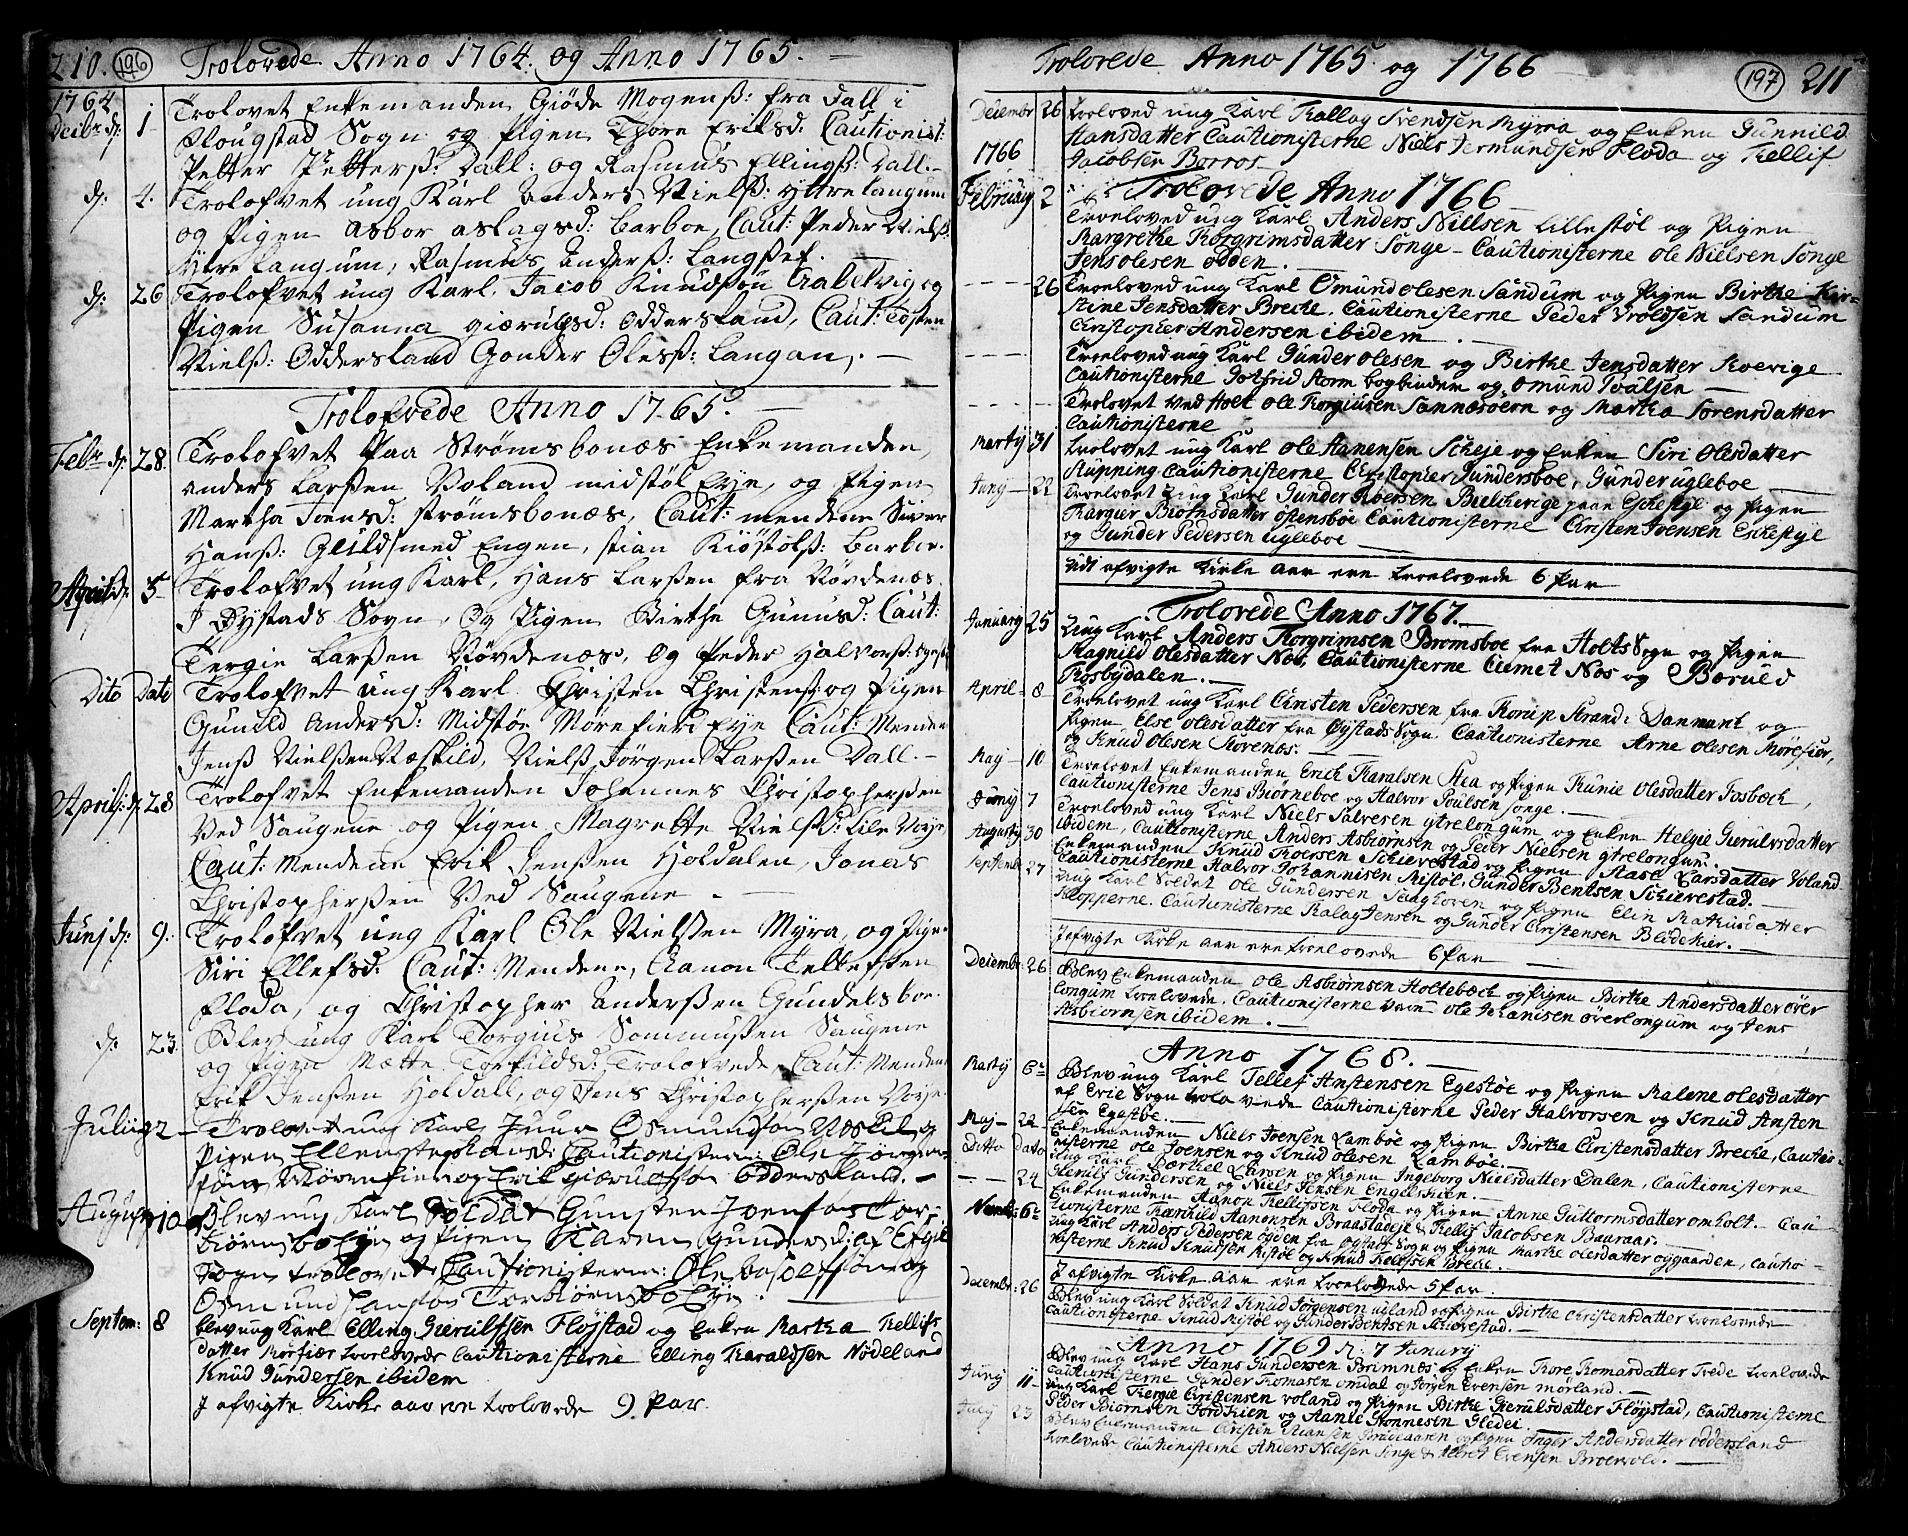 210. 196 Trolovede Anno 1764. og Anno 1765.
1764
Decibr d: 1 Trolovet Enkemanden Giöde Mogenß: fra Dall i
Plougstad Sogn og Pigen Thore Eriksd: Cautionist:
Petter Petterß: Dall: og Rasmus Ellingß: Dall.
d: 4. Trolofvet ung Karl Anders Nielß: Yttre langum
og Pigen Asbor Aslagsd: Barboe, Caut: Peder Nielß:
Ytre Langum, Rasmus Anderß: Langsef.
d: 26 Trolofvet ung Karl, Jacob Knudsøn og
Pigen Susanna Giæruldsd: Oddersland, Caut: Tosten
Nielß: Oddersland Gonder Olesß: Langan,
Trolofvede Anno 1765.
Febr d: 28. Trolofvet paa Strømsbonæs Enkemanden,
Anders Larßen Voland midstøl Eye, og Pigen
Martha Joensd: Strømsbonæs, Caut: mendene Siver
Hanß: Guldsmed Engen, Stian Kiöstolß: Barboe.
April d: 5 Trolofvet ung Karl, Hans Larßen fra Røvdenæs
I Øystads Sogn, Og Pigen Birthe Gunusd: Caut:
Tergie Larßen Røvdenæs, og Peder Halvorß:
Dito Dato Trolofvet ung Karl Christen Christensß: og Pigen
Gunild Andersd: Midstøe Morefier Eye Caut: Mendene
Jenß Nielßen Næskild, Nielß Jörgen Larßen Dall.
April: d: 28 Trolofvet Enkemanden Johannes Christopherßen
Ved Saugene og Pigen Magrette Nielsd: Lile Voye
Caut: Mendene Erik Jenßen Holdalen, Jonas
Christopherßen Ved Saugene.
Junj d: 9. Trolofvet ung Karl Ole Nielßen Myra, og Pigen
Siri Ellefsd: Caut: Mendene, Aanon Tellefßen
Floda, og Christopher Anderßen Gundelsboe.
d: 23. Blev ung Karl Torgius Sommußen Saugene
og Pigen Mætte Torkildsd: Trolofvede Caut: Mendene
Erik Jenßen Holdall, og Jens Christopherßen Voye
Julii 2 Trolovet ung Karl Juur Osmundsøn Næskil og
Pigen Ellen Cautionister: Ole Jörgen-
søn Mørenfier og Erik Giærulsøn Oddersland.
August 10 Blev ung Karl Soldat Gunsten Joensøn Tor-
biörnsboe og Pigen Karen Gundersd: af
Sogn trolovet Cautionisterne: Ole og
Osmund Torbiörnsboe.
Septem: 8 blev ung Karl Elling Gierulfsen Fløystad og Enken Martha Tellifs
datter troelovede Cautionisterne Elling Haraldsen Nødeland
Knud Gundersen ibidem
J afvigte Kirke aar ere trolovede 9 Par.
Trolovede Anno 1765 og 1766 197 211
Decembr 26 troloved ung Karl Kallag Svendsen Myrra og Enken Gunnild
Hansdatter Cautionisterne Niels Jermundsen Floda og Tellif
Jacobsen Borros
1766
Trolovede Anno 1766
February 2 Troeloved ung Karl Anders Nillsen Lillestøl og Pigen
Margrethe Torgrimsdatter Songe - Cautionisterne Ole Nielsen Songe
Jens Olesen Odden.
26 Troeloved ung Karl Omund Olesen Sandum og Pigen Birthe Kir-
stine Jensdatter Brecke. Cautionisterne Peder Vroldsen Sandum
Christopher Andersen ibidem.
Troeloved ung Karl Gunder Olesen og Birthe Jensdatter
Cautionisterne Gotfrid Storm bogbinder og Omund
Trolovet ved Holt Ole Torgiusen Sannæsøern og Martha Sørensdatter
Cautionisterne
Martij 31 trolovet ung Karl Ole Aanensen Scheje og Enken Siri Olesdatter
Cautionisterne Christopher Gundersboe, Gunder Ugleboe
Junij 22 Troelovet ung Karl Gunder Roersen paa Eskestyl og Pigen
Biörnsdatter Østensbøe Cautionisterne Christen Ivensen Eskestyl
og Gunder Pedersen Ugleboe
Udi afvigte Kirke aar ere troelovede 6 Par
Trolovede Anno 1767.
January 25 Ung Karl Anders Torgrimsen Bromsboe fra Holts Sogn og Pigen
Magnild Olesdatter Næs, Cautionisterne Clemet Næs og Børuld
Rosbydalen.
April 8 Troelovet ung Karl Christen Pedersen fra Torup Strand i Danmark og
Pigen Else Olesdatter fra Øystads Sogn. Cautionisterne Arne Olesen Mørefier,
og Knud Olesen Storenæs.
May 10 Troelovet Enkemanden Erich Haralsen Hea og Pigen Gunie Olesdatter Fosbæck,
Cautionisterne Jens Biörneboe og Halvor Poulsen Songe.
Juny 7 Troeloved ung Karl Niels Salvesen ytrelongum og Enken Helgie Gierulvsdatter
ibidem, Cautionisterne Anders Asbiørnsen og Peder Nielsen ytrelongum.
Augusty 30 Enkemanden Knud Roersen Schierestad og Pigen Aase Larsdatter Voland
Cautionisterne Halvor Johannisen Mistøl, Gunder Bentsen Schierestad.
Septembr 27 Ung Karl Soldat Ole Gundersen Saughoven og Pigen Elin Mathisdatter
Klopperne. Cautionisterne Kalag Jensen og Gunder Christensen Blødekier.
J afvigte Kirke aar ere troelovede 6 Par
Decembr: 26 Blev Enkemanden Ole Asbiørnsen Holtebæck og Pigen Birthe Andersdatter øver
longum troelovede. Cautionisterne vare Ole Johanisen øverlongum og Jens
Asbiørnsen ibidem.
Anno 1768.
Martij 6te Blev ung Karl Tellef Anstensen Egestøe og Pigen Malene Olesdatter
af Evie Sogn trolovede Cautionisterne Peder Halvorsen og Knud Ansten
sen Egestøe.
Maj 22 Enkemanden Niels Ivensen Lambøe og Pigen Birthe Christensdatter Brecke, Cautio-
nisterne Ole Joensen og Knud Olesen Lambøe.
Ditto dato Ung Karl Bærthel Larsen og Pigen Ingeborg Nielsdatter Dalen, Cautionisterne
Gieruld Gundersen og Niels Jensen Engelskien.
24 Enkemanden Aanon Tellifsen Floda og Pigen Anne Guttormsdatter omholt. Cau-
tionisterne Tarkild Aanonsen Braastadeje & Tellif Jacobsen Bauraas.
Novbr: 6te Ung Karl Anders Pedersen ogden fra Øystads Sogn og Pigen Marthe Olesdatter opgaarden, Cautio-
nisterne Knud Knudsen Mistøl og Knud Tellefsen Brecke.
J afvigte Kirke aar ere troelovede 5 Par.
Decembr: 26 Blev ung Karl Soldat Knud Jørgensen Ugland og Pigen Birthe Christensdatter troelovede
Cautionisterne Knud Mistøl og Gunder Bentsen Schierestad.
Anno 1769 d: 7 January
Blev ung Karl Hans Gundersen Brimnæs og Enken Thore Thomasdatter Trede troelovede
Cautionisterne Gunder Thomasen omdal og Jørgen Evensen mørland.
Juny 11 Ung Karl Tergie Christensen Voland og Pigen Birthe Gierulsdatter Fløystad, Cautionisterne
Peder Biørnsen Jordkien og Aanie Thommesen Gledei
July 23 Blev Enkemanden Christen og Pigen Inger Andersdatter oddersland
troelovede Cautionisterne Anders Nielsen Songe & Evensen Broevold.